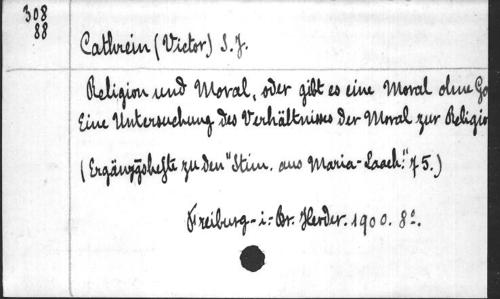 308
88
Cathrein (Victor) S. J.
Religion und Moral, oder gibt es eine Moral ohne Go
Eine Untersuchung des Verhältnisses der Moral zur Religio
(Ergänzgshefte zu den "Stim. aus Maria-Laach." 75.)
Freiburg-i.-Br. Herder. 1900. 8°.